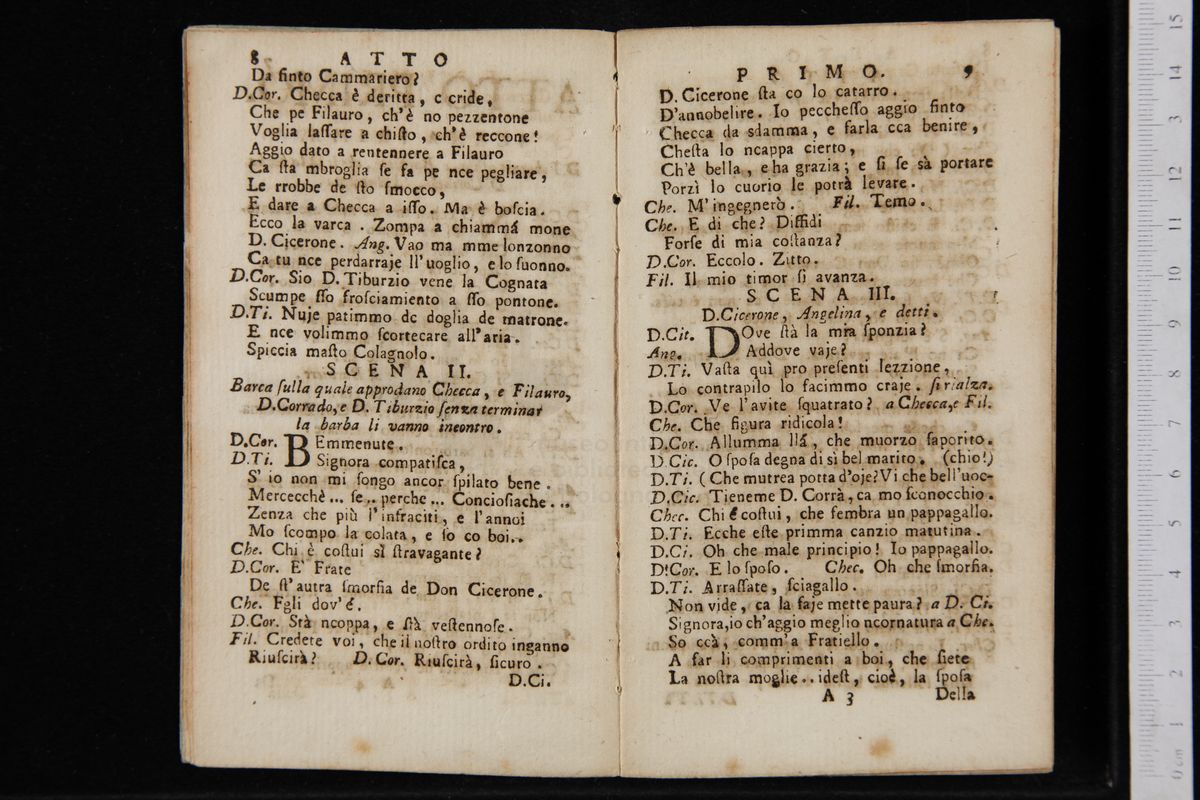 8 ATTO
Da finto Cammariero?
D.Cor. Checca è deritta, e cride,
Che pe Filauro, ch'è no pezzentone
Voglia laſſare a chiſto, ch'è reccone!
Aggio dato a rentennere a Filauro
Ca ſta mbroglia ſe fa pe nce pegliare,
Le rrobbe de ſto ſmocco,
E dare a Checca a iſſo. Ma è boſcia.
Ecco la varca. Zompa a chiammá mone
D. Cicerone. Ang. Vao ma mme lonzonno
Ca tu nce perdarraje ll'uoglio, e lo ſuonno.
D.Cor. Sio D. Tiburzio vene la Cognata
Scumpe ſſo froſciamiento a ſſo pontone.
D.Ti. Nuje patimmo de doglia de matrone.
E nce volimmo ſcortecare all'aria.
Spiccia maſto Colagnolo.
SCENA II.
Barca ſulla quale approdano Checca, e Filauro,
D.Corrado, e D. Tiburzio ſenza terminar
la barba li vanno incontro.
D.Cor. BEmmenute.
D.Ti. Signora compatiſca,
S' io non mi ſongo ancor ſpilato bene.
Mercecchè... ſe.. perche... Concioſiache...
Zenza che più l'infraciti, e l'annoi
Mo ſcompo la colata, e ſo co boi..
Che. Chi è coſtui sì ſtravagante?
D.Cor. E' Frate
De ſt'autra ſmorfia de Don Cicerone.
Che. Egli dov'é.
D.Cor. Stà ncoppa, e ſtà veſtennoſe.
Fil. Credete voi, che il noſtro ordito inganno
Riuſcirà? D. Cor. Riuſcirà, ſicuro.
D.Ci.
PRIMO. 9
D. Cicerone ſta co lo catarro.
D'annobelire. Io peccheſſo aggio finto
Checca da sdamma, e farla cca benire,
Cheſta lo ncappa cierto,
Ch'è bella, e ha grazia; e ſi ſe sà portare
Porzì lo cuorio le potrà levare.
Che. M'ingegnerò. Fil. Temo.
Che. E di che? Diffidi
Forſe di mia coſtanza?
D.Cor. Eccolo. Zitto.
Fil. Il mio timor ſi avanza.
SCENA III.
D.Cicerone, Angelina, e detti.
D.Cit. DOve ſtà la mia ſponzia?
Ang. Addove vaje?
D.Ti. Vaſta quì pro preſenti lezzione,
Lo contrapilo lo facimmo craje. ſi rialza.
D.Cor. Ve l'avite ſquatrato? a Checca, e Fil.
Che. Che figura ridicola!
D.Cor. Allumma llá, che muorzo ſaporito.
D.Cic. O ſpoſa degna di sì bel marito. (chio!)
D.Ti. (Che mutrea potta d'oje? Vi che bell'uoc-
D.Cic. Tieneme D. Corrà, ca mo ſconocchio.
Chec. Chi é coſtui, che ſembra un pappagallo.
D.Ti. Ecche eſte primma canzio matutina.
D.Ci. Oh che male principio! Io pappagallo.
D!Cor. E lo ſpoſo. Chec. Oh che ſmorfia.
D.Ti. Arraſſate, ſciagallo.
Non vide, ca la faje mette paura? a D. Ci.
Signora, io ch'aggio meglio ncornatura a Che.
So ccà, comm'a Fratiello.
A far li comprimenti a boi, che ſiete
La noſtra moglie.. ideſt, cioè, la ſpoſa
A 3 Della